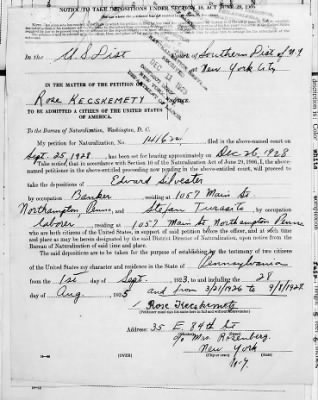 NOTICE TO TAKE DEPOSITIONS UNDER SECTION 10, ACT JUNE 29, 1906
In the U.S. Dist Southern Dist of N.Y
New York City
IN THE MATTER OF THE PETITION OF
Rose Kecskemety
TO BE ADMITTED A CITIZEN OF THE UNITED STATES
OF AMERICA.
To the Bureau of Naturalization, Washington, D. C.
My petition for Naturalization, No. filed in the above-named court on
Sept. 25, 1928, has been set for hearing approximately on Dec 26, 1928
Take notice, that in accordance with Section 10 of the Naturalization Act of June 29, 1906, the above-
named petitioner in the above-entitled proceeding now pending in the above-entitled court, will proceed to
take the depositions of Edward Silvester
by occupation Banker residing at 1057 Main St
Northampton Penna, and Stefan, by occupation
laborer residing at 1057 Main St, Northampton Penna
who are both citizens of the United States, in support of said petition before the officer, and at such time
and place as may be designated by the said District Director of Naturalization, upon notice from the
Bureau of Naturalization of said time and place.
The said depositions are to be taken for the purpose of establishing by the testimony of two citizens
of the United States my character and residence in the State of Pennsylvania
from the 1st day of Sept. 1923, to and including the 28
day of Aug 1925 and from 3/21/1926 to 9/8/1928.
Rose Kecskemety
Address: 35 E. 84th St
c/o Mrs. Rosenberg
New York
N.Y.
(OVER)